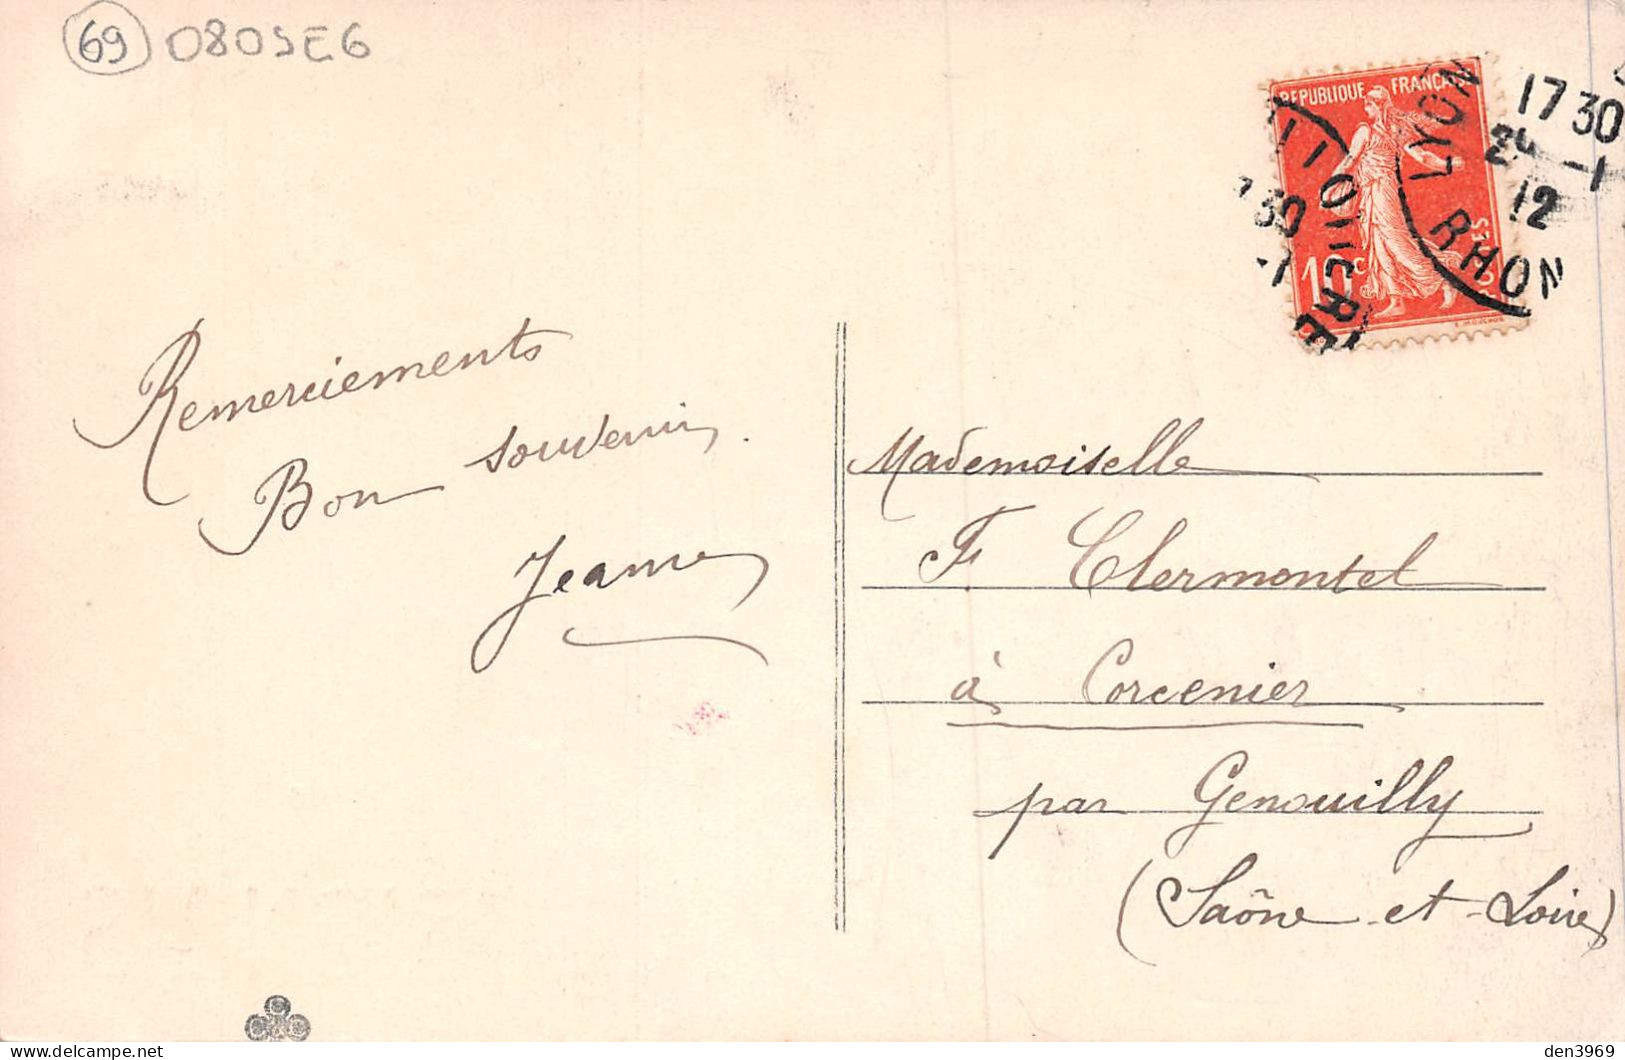 69 0805E6
REPUBLIQUE FRANCAISE
10c
POSTES
LYON
RHON
17 30
24 -1
12
Remerciements
Bon souvenir.
Jeanne
Mademoiselle
F Clermontel
à Corcenier
par Genouilly
(Saône-et-Loire)
den3969